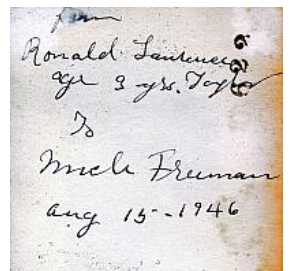 from
Ronald Laurence
age 3 yrs. Taylor
To
Uncle Freeman
aug 15-1946